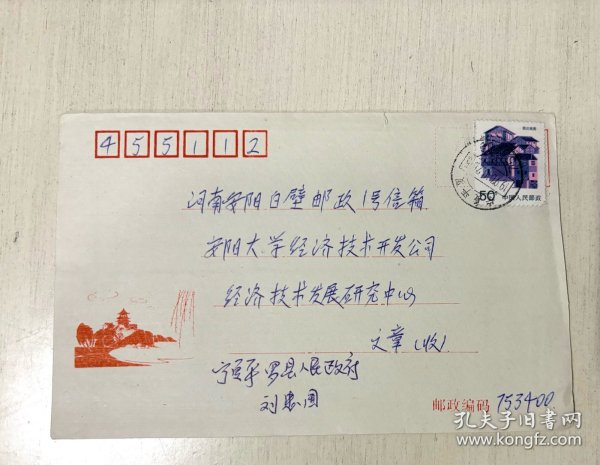 455112
50 中国人民邮政
河南安阳白壁邮政1号信箱
安阳大学经济技术开发公司
经济技术发展研究中心
文章(收)
宁夏平罗县人民政府
刘忠国
邮政编码 753400
孔夫子旧书网
www.kongfz.com